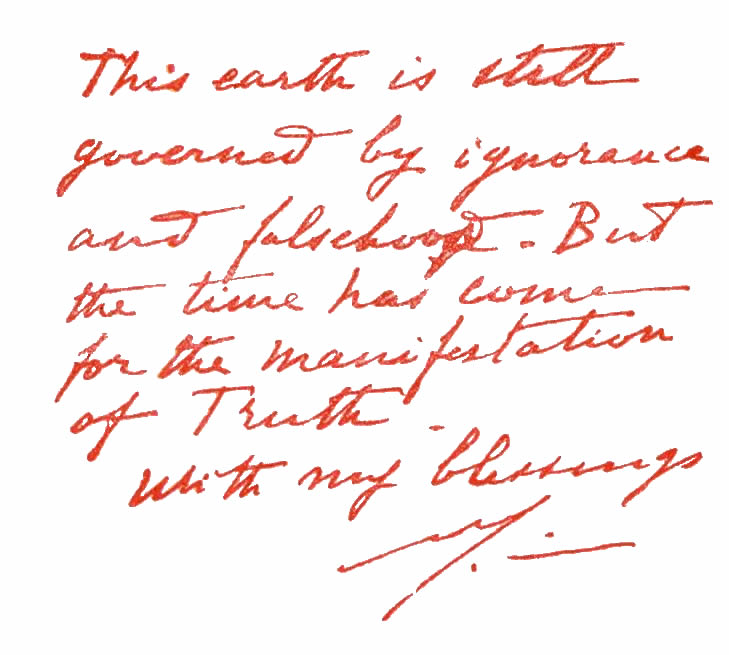 This earth is still
governed by ignorance
and falsehood. But
the time has come
for the manifestation
of Truth.
With my blessings